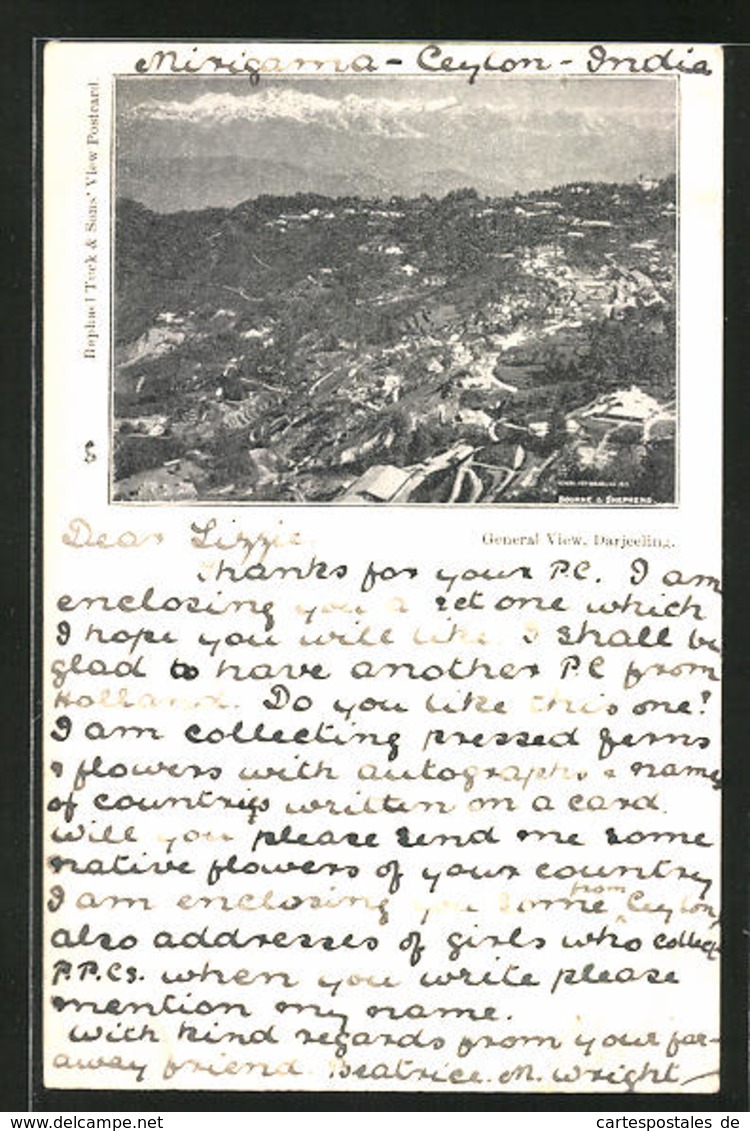 Mirigama - Ceylon - India
Raphael Tuck & Sons' View Postcard.
BOURNE & SHEPHERD.
General View, Darjeeling.
Dear Lizzie.
Thanks for your P.C. I am
enclosing you a set one which
I hope you will like. I shall be
glad to have another P.C from
Holland. Do you like this one?
I am collecting pressed ferns
& flowers with autographs & names
of countries written on a card.
Will you please send me some
native flowers of your country
I am enclosing you some from Ceylon,
also addresses of girls who collect
P.P.Cs. when you write please
mention my name.
With kind regards from your far-
away friend. Beatrice. M. Wright
www.delcampe.net
cartespostales de